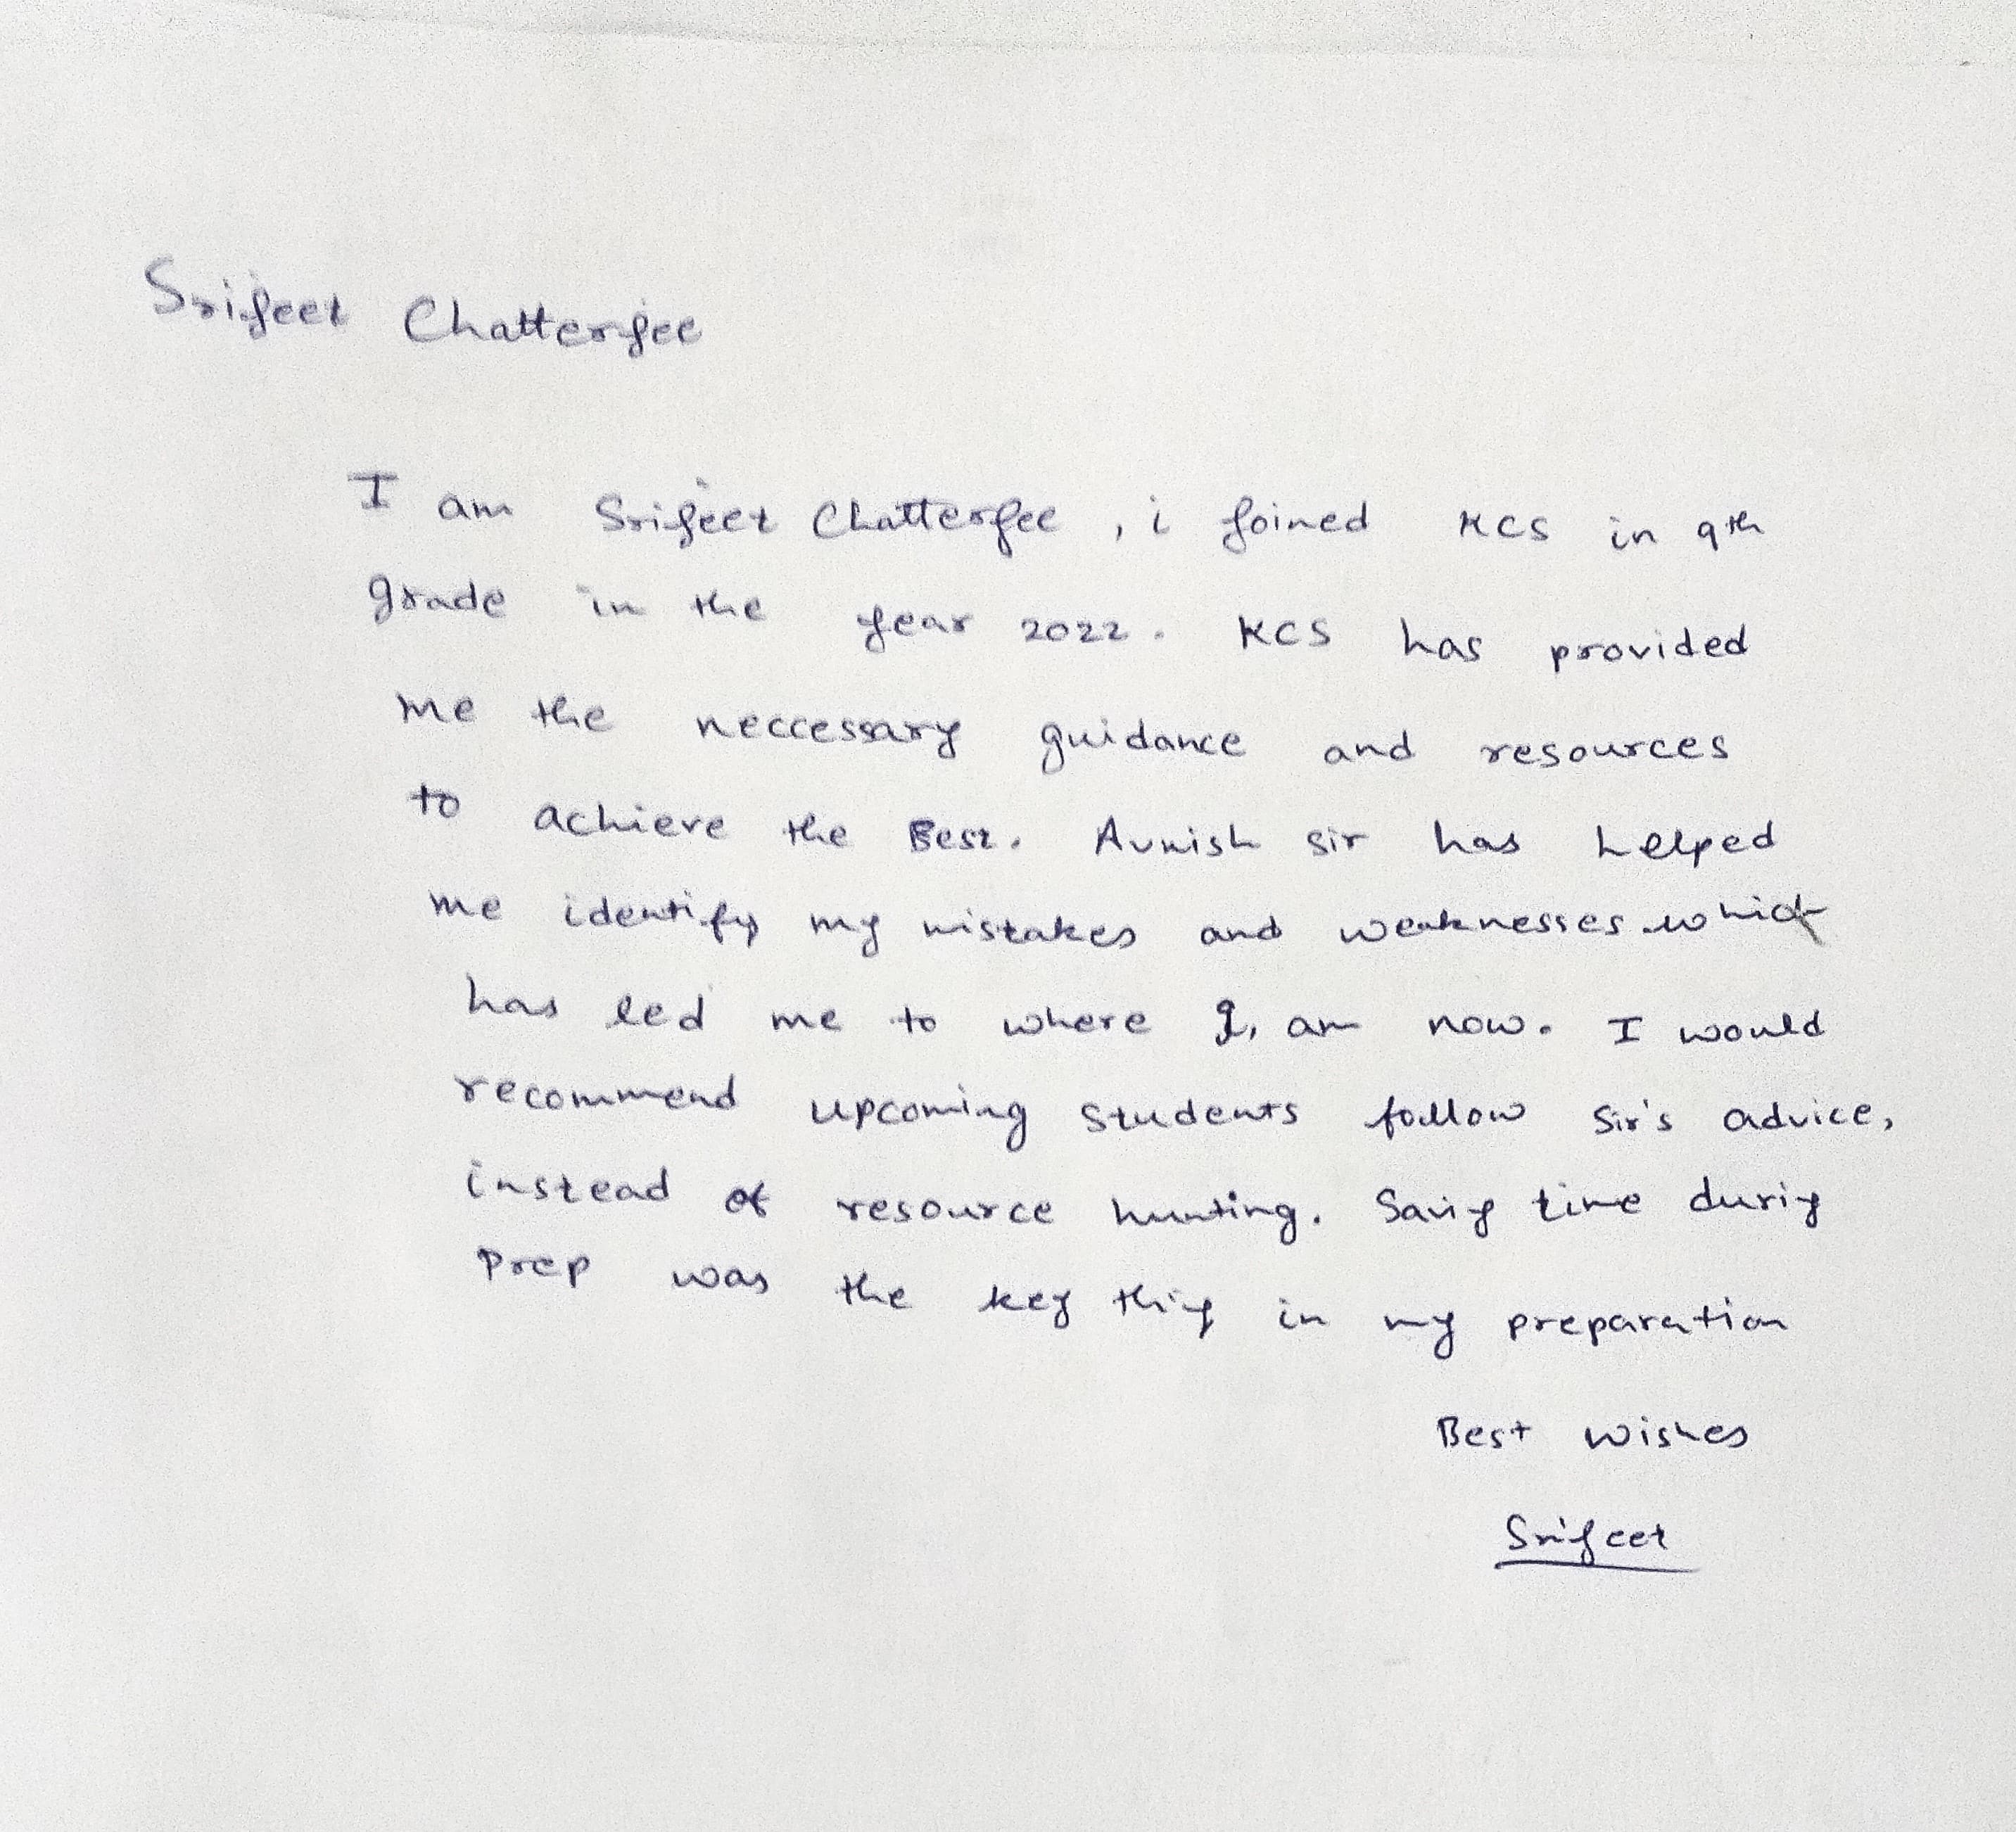 Srijeet Chatterjee
I am Srijeet Chatterjee, i joined KCS in 9th
grade in the year 2022. KCS has provided
me the neccessary guidance and resources
to achieve the Best. Avnish sir has helped
me identify my mistakes and weaknesses which
has led me to where I am now. I would
recommend upcoming students follow sir's advice,
instead of resource hunting. Saving time during
Prep was the key thing in my preparation
Best wishes
Srijeet